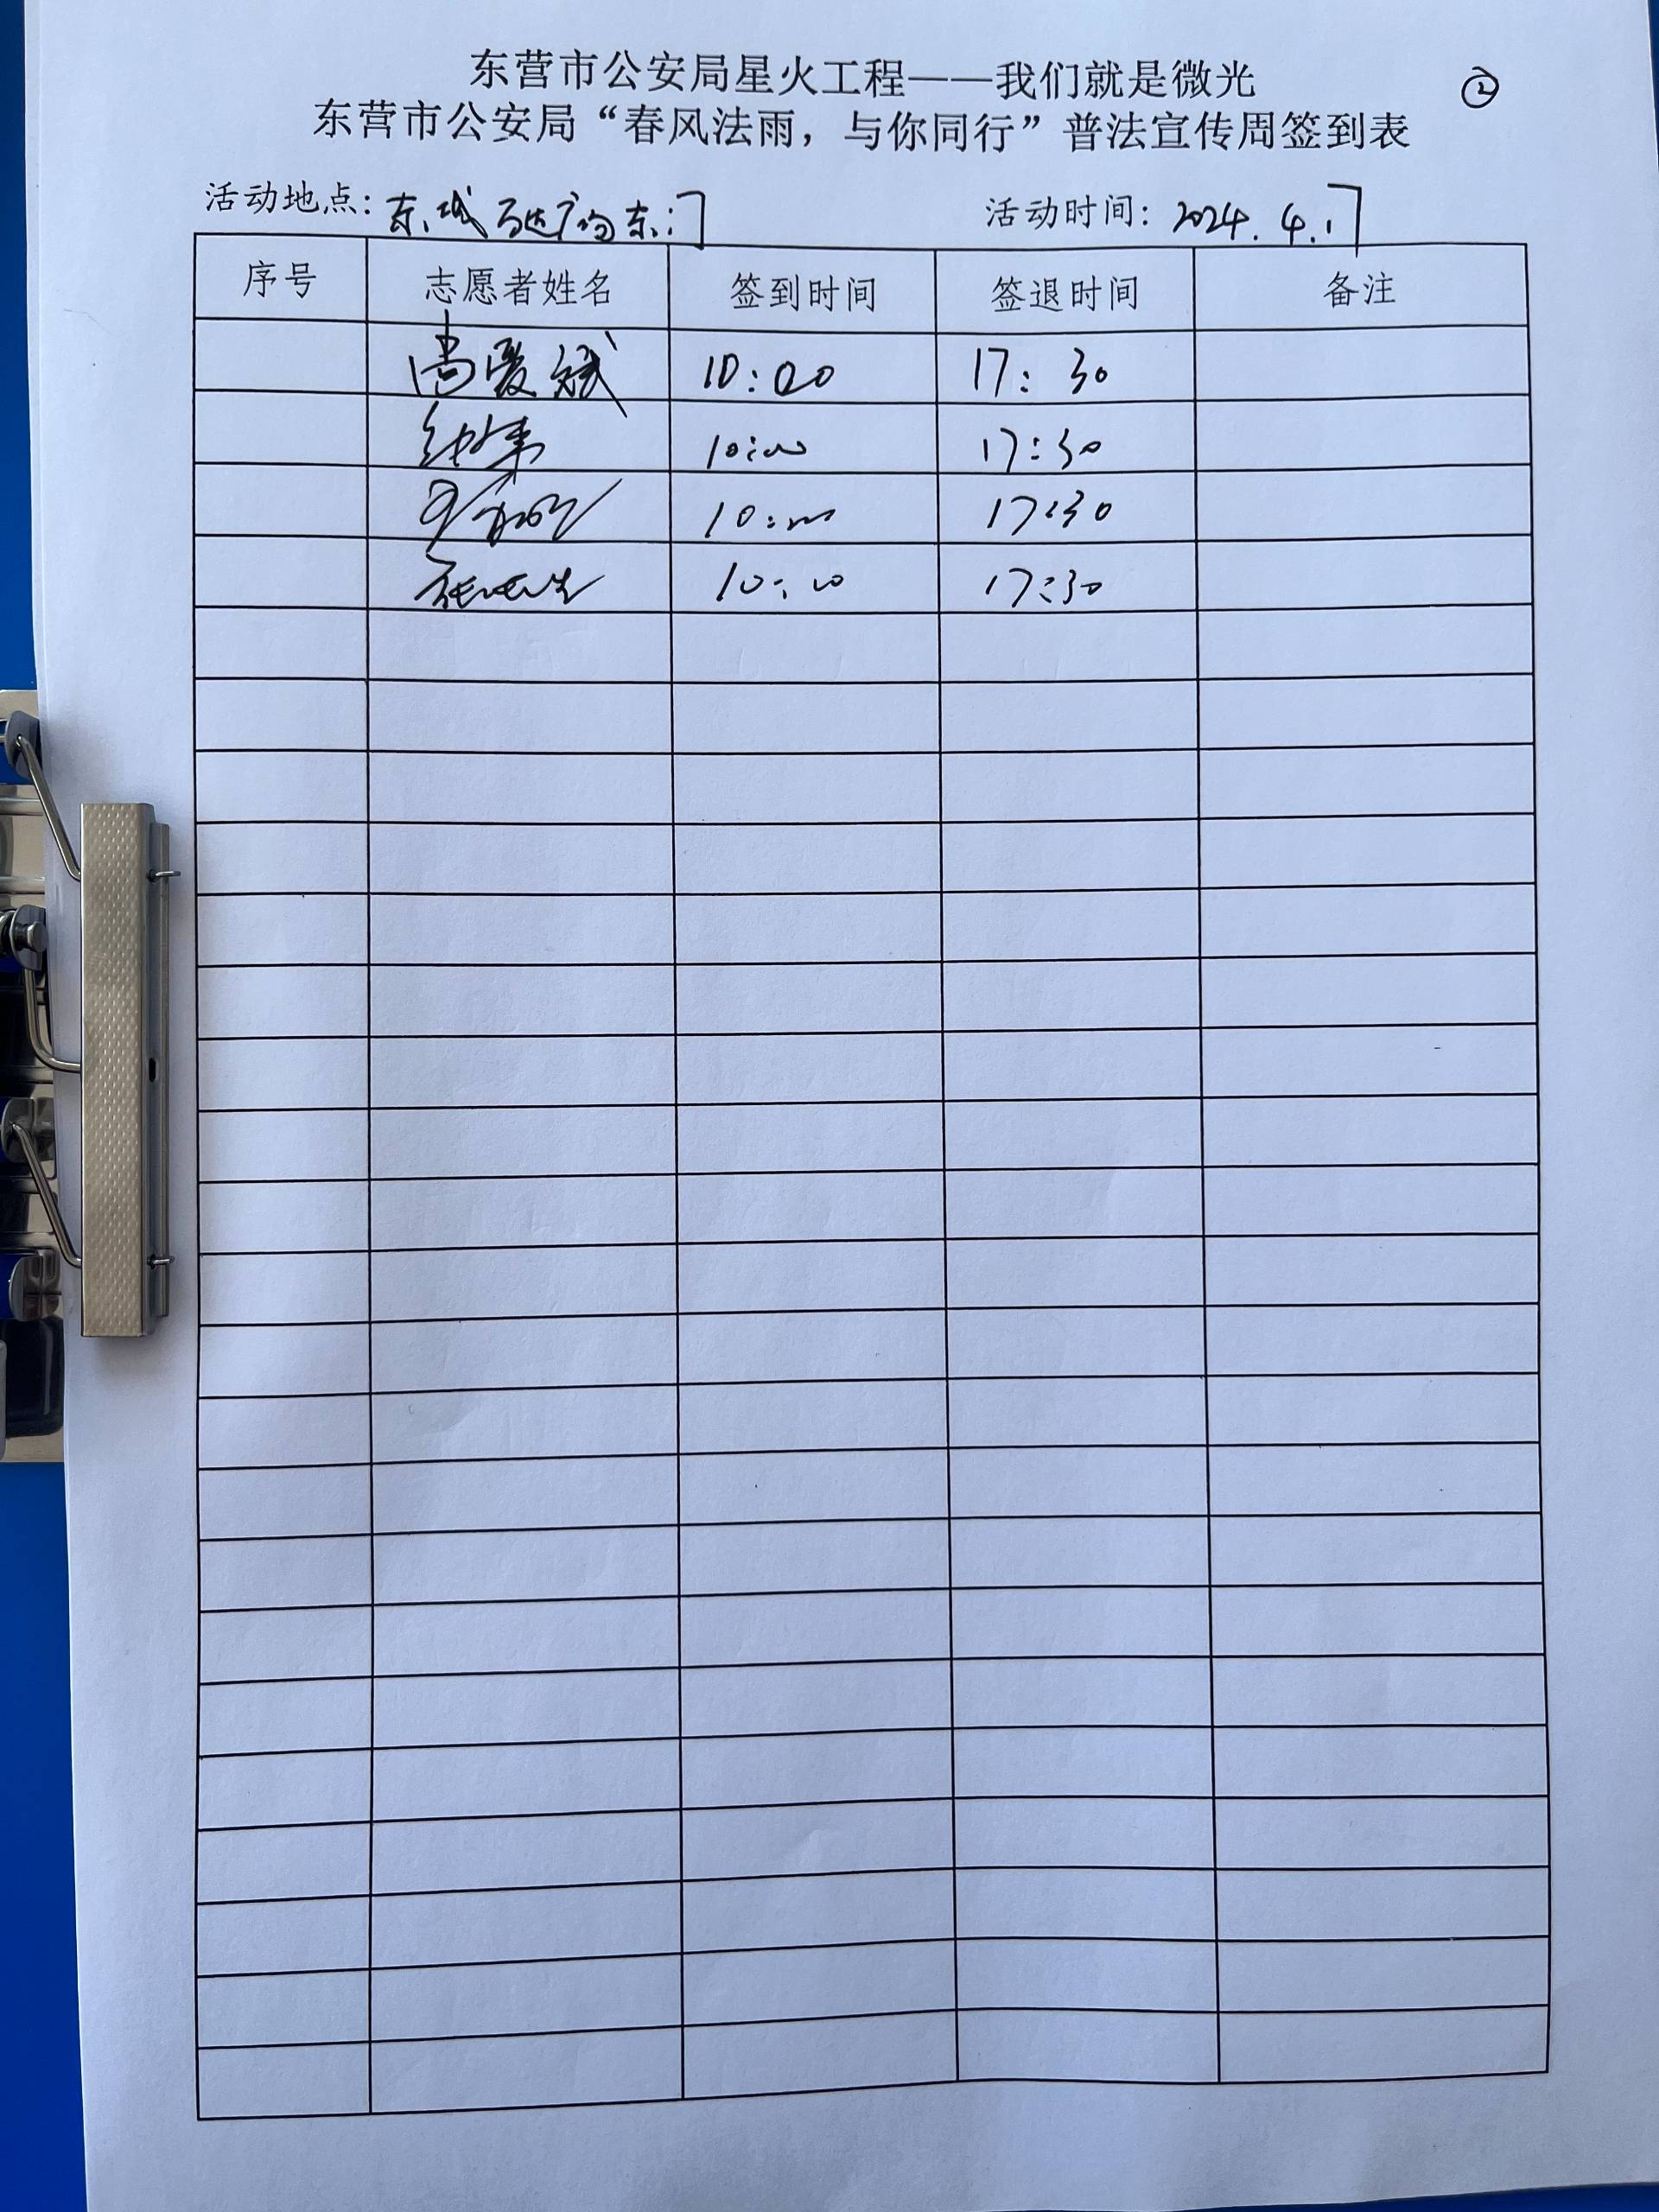 东营市公安局星火工程——我们就是微光
②
东营市公安局“春风法雨，与你同行”普法宣传周签到表
活动地点：东城万达广场东门 活动时间：2024.4.17
序号 志愿者姓名 签到时间 签退时间 备注
尚爱斌 10:00 17:30
10:00 17:30
10:00 17:30
10:00 17:30